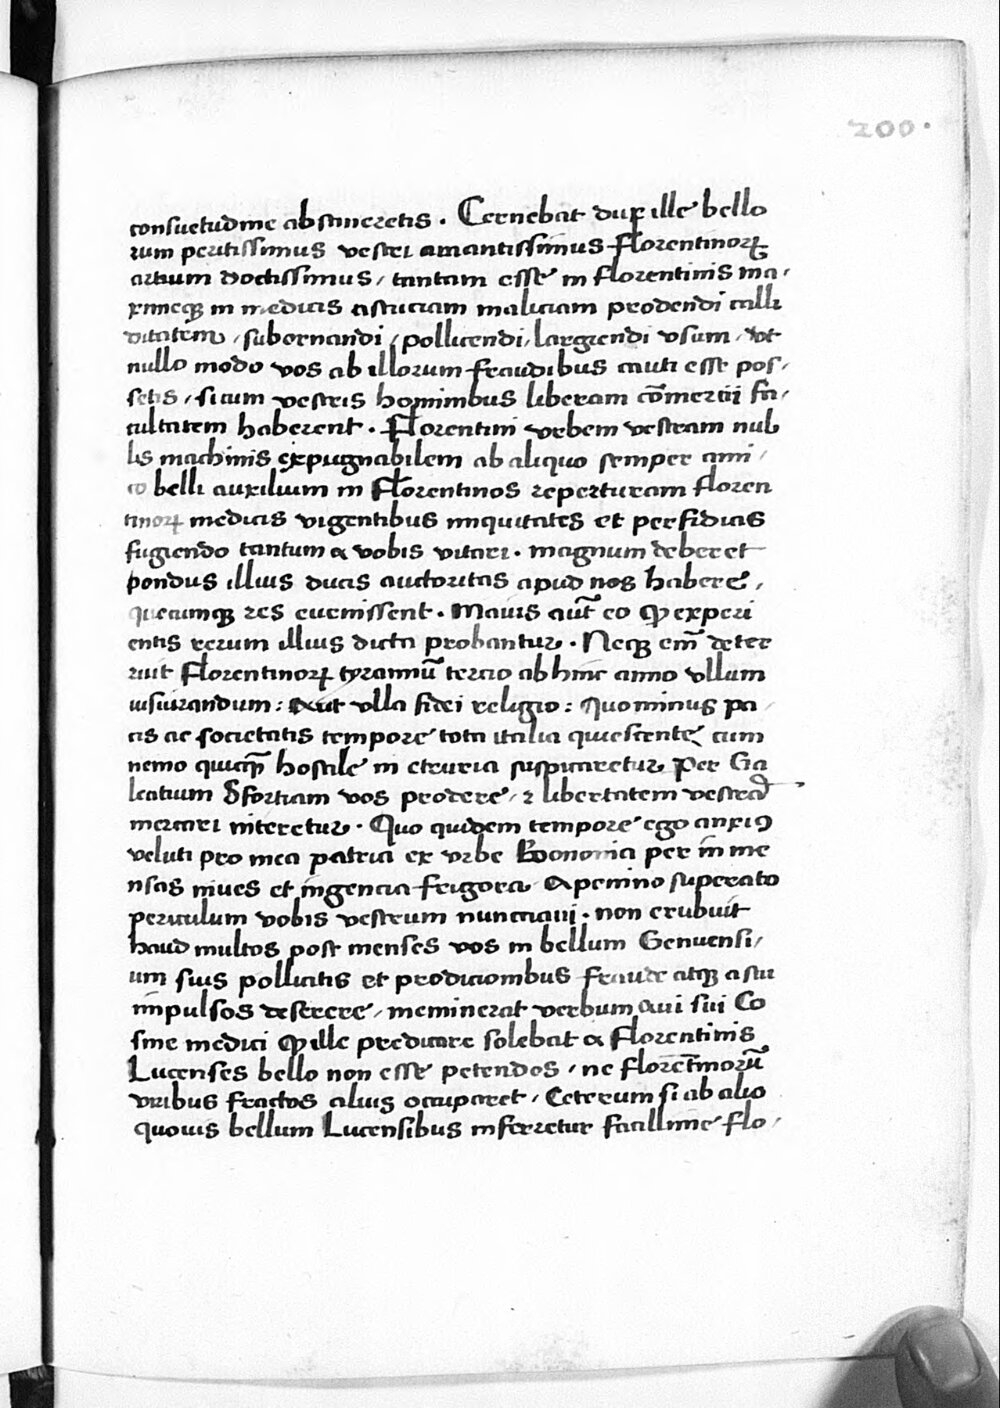 200.
consuetudine abstineretis . Cernebat dux ille bello
rum peritissimus vestri amantissimus florentinoꝝ
artium doctissimus / tantam esse in florentinis ma/
ximeqꝫ in medicis astuciam maliciam prodendi calli
ditatem / subornandi / pollicendi / largiendi vsum / vt
nullo modo vos ab illorum fraudibus cauti esse pos/
setis / si cum vestris hominibus liberam cōmertii fa/
cultatem haberent . Florentini vrbem vestram nul
lis machinis expugnabilem ab aliquo semper ami/
co belli auxilium in Florentinos reperturam floren
tinoꝝ medicis vigentibus iniquitates et perfidias
fugiendo tantum a vobis vitari . magnum deberet
pondus illius ducis auctoritas apud nos habere /
quecumqꝫ res euenissent . Mauis aūt eo ꝙ experi
entis rerum illius dicta probantur . Neqꝫ em̄ deter
ruit Florentinoꝝ tyrannū tercio abhinc anno vllum
iusiurandum : Aut vlla fidei religio : Quominus pa/
cis ac societatis tempore tota italia quiescente / cum
nemo quicꝙ̄ hostile in etruria suspicaretur Per Ga
leatium Sfortiam vos prodere / ⁊ libertatem vestrā
mercari niteretur . Quo quidem tempore ego anxiꝰ
veluti pro mea patria ex vrbe Bononia per inme
nsas niues et ingencia frigora Apenino superato
periculum vobis vestrum nunctiaui . non erubuit
haud multos post menses vos in bellum Genuensi/
um suis pollicitis et prodicionibus fraude atqꝫ astu
impulsos deserere / meminerat verbum Aui sui Co
sme medici ꝙ ille predicare solebat a Florentinis
Lucenses bello non esse petendos / ne florentinorū
viribus fractos alius occuparet / Ceterum si ab alio
quouis bellum Lucensibus inferretur facillime flo/